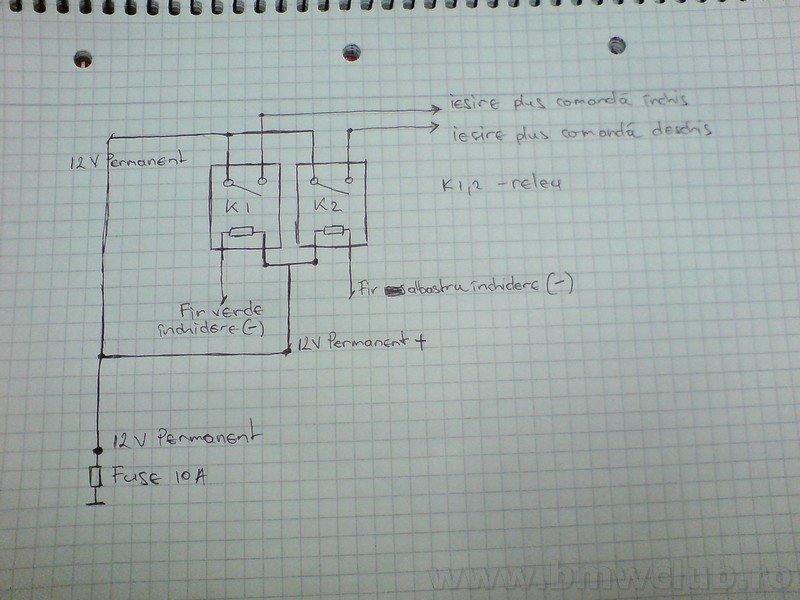 iesire plus comandă închis
iesire plus comandă deschis
12V Permanent
K1,2 - releu
K1
K2
Fir albastru închidere (-)
Fir verde
închidere (-)
12V Permanent +
12V Permanent
Fuse 10A
www.bmwclub.ro